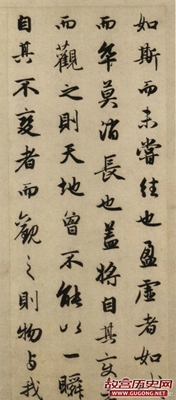 如斯而未嘗往也盈虛者如
而卒莫消長也蓋將自其變
而觀之則天地曾不能以一瞬
自其不變者而觀之則物与我
故宫历史网
WWW.GUGONG.NET